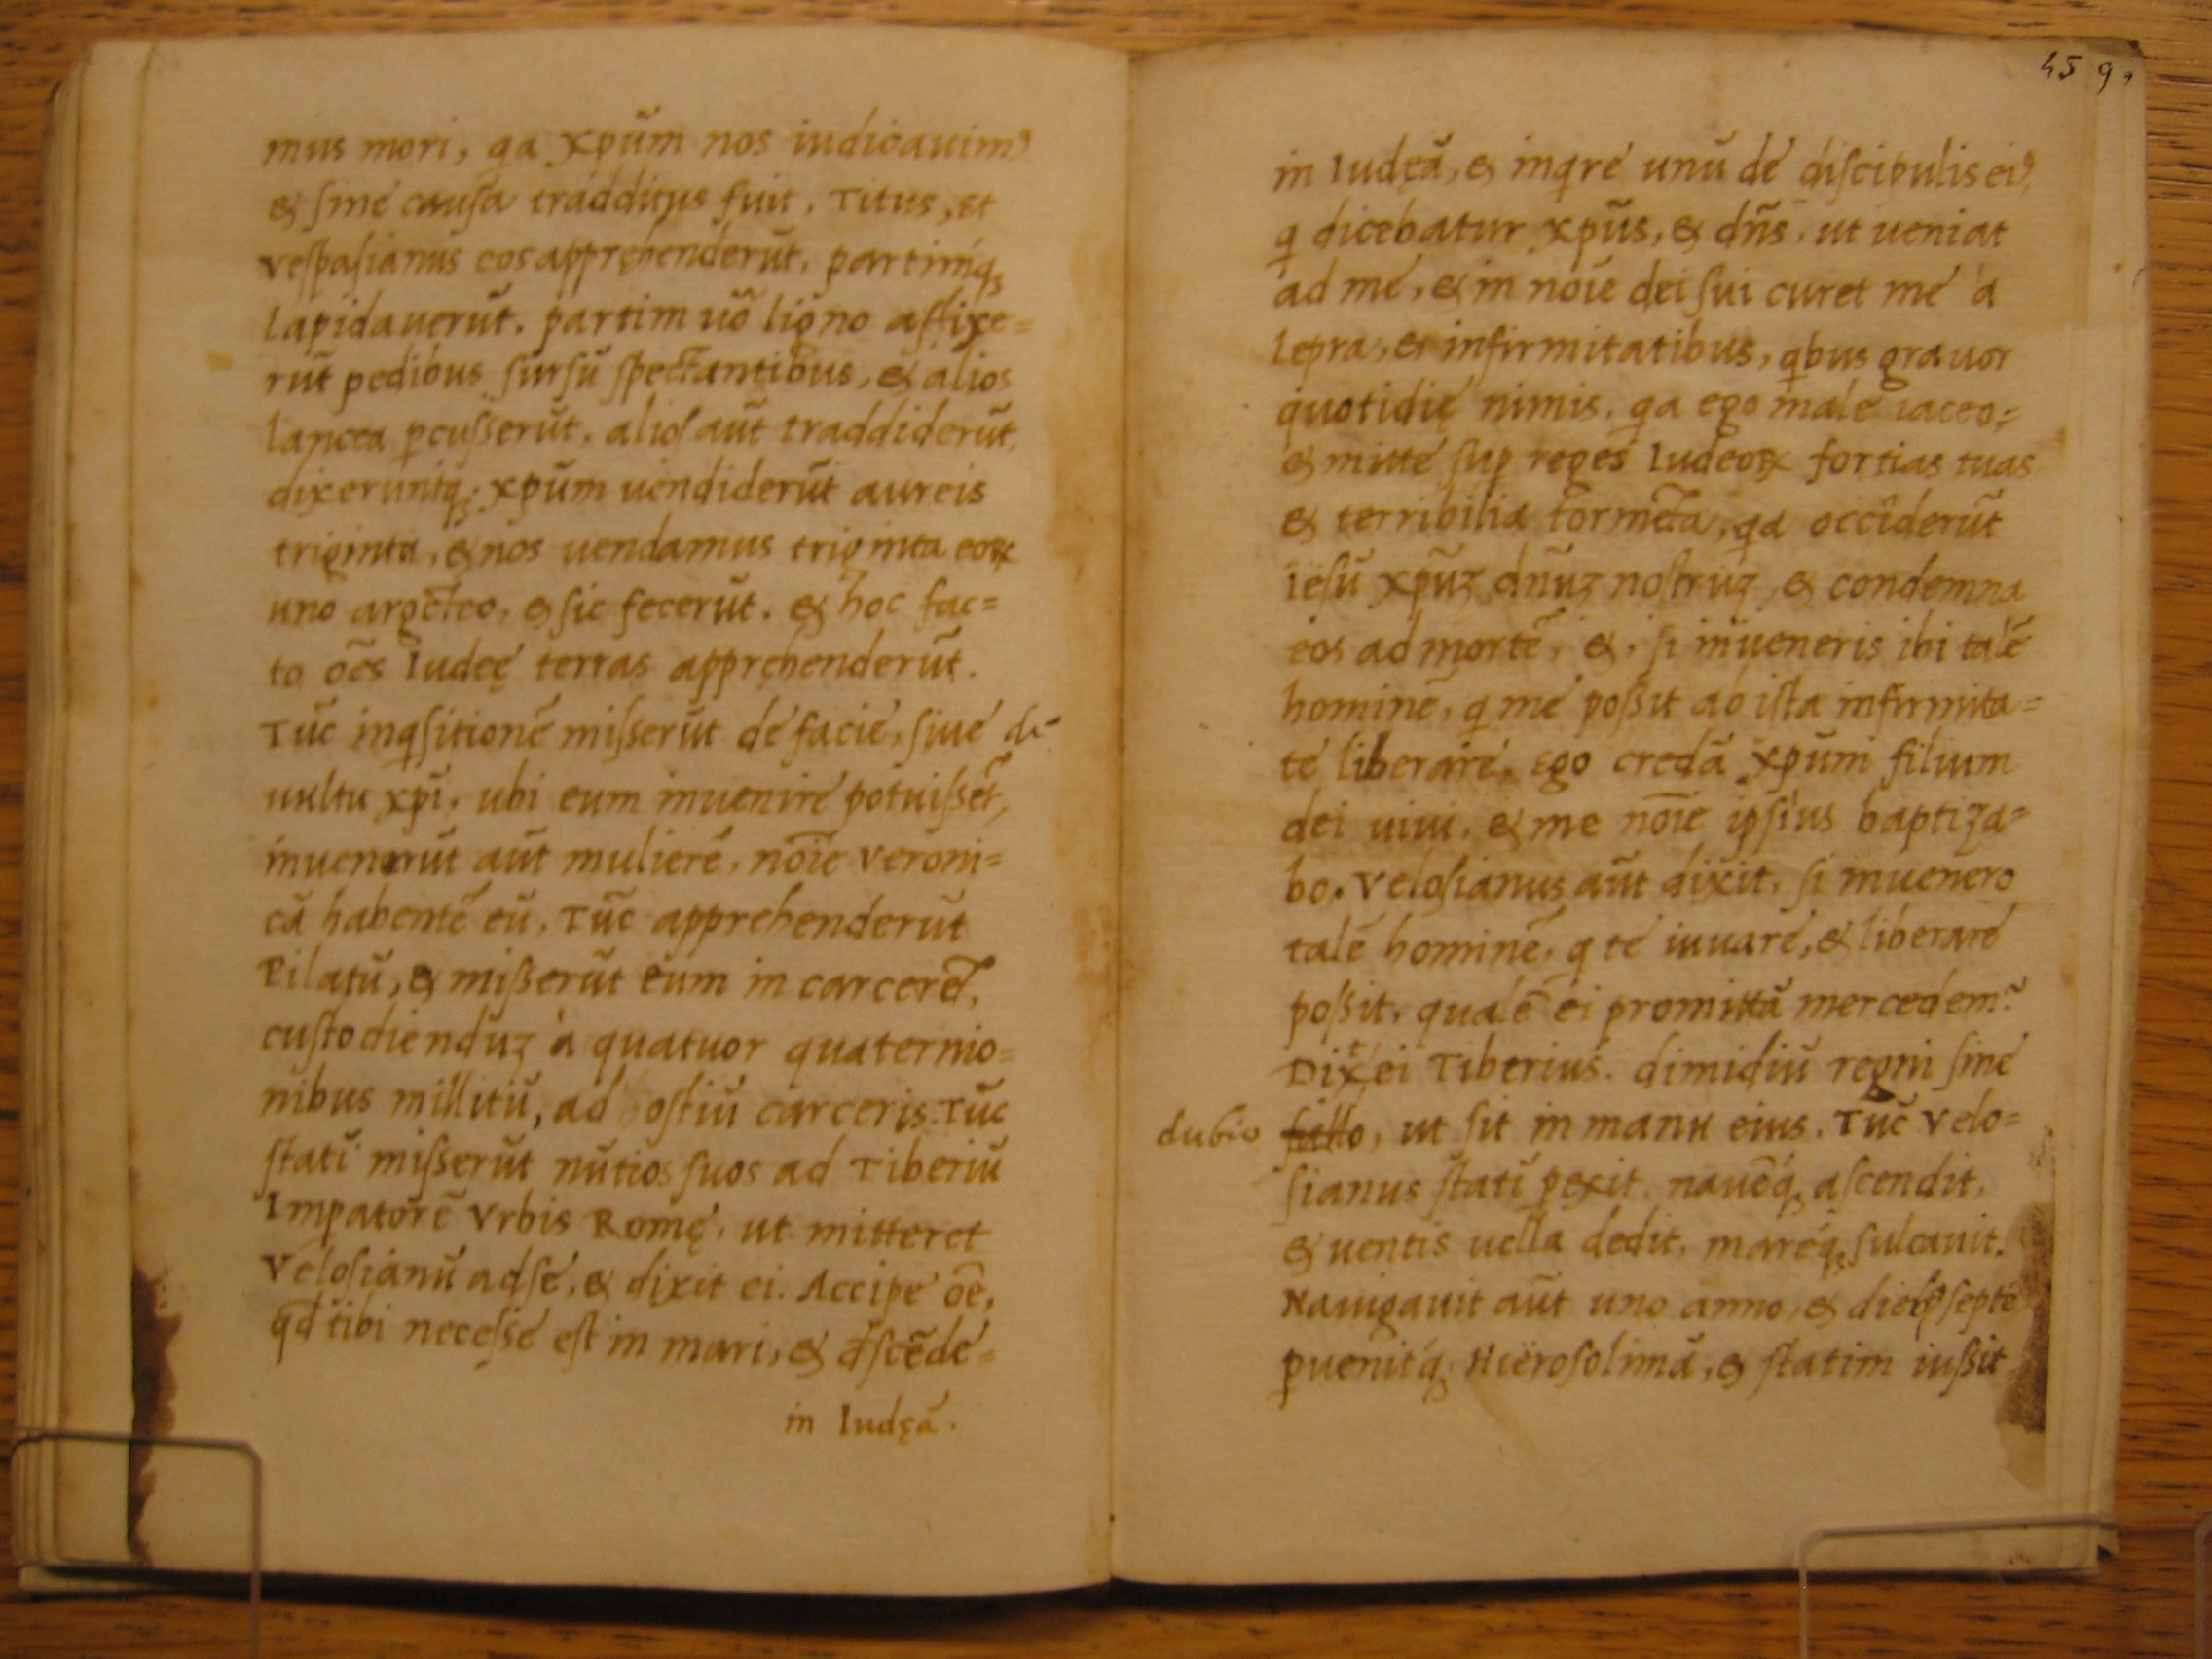 mus mori, qa xpũm nos iudicauim⁹
& ſine cauſa tradditus fuit. Titus, et
veſpaſianus eos appręhenderũt. partimq;
lapidauerũt. partim uõ ligno affixe=
rũt pedibus ſurſũ ſpectantibus, & alios
lancea ꝑcuſſerũt, alios aũt traddiderũt,
dixeruntq; xpũm uendiderũt aureis
triginta, & nos uendamus triginta eoꝝ
uno argẽteo, & ſic fecerũt. & hoc fac=
to oẽs Iudeę terras appręhenderũt.
Tũc inqſitionẽ miſſerũt de facie, ſiue de
uultu xpĩ, ubi eum inuenire potuiſſẽt,
inuenerũt aũt mulierẽ, nõie veroni=
cã habentẽ eũ, Tũc apprehenderũt
Pilatũ, & miſſerũt eum in carcerẽ,
cuſtodienduʒ à quatuor quaternio=
nibus millitũ, ad oſtiũ carceris. Tũc
ſtatĩ miſſerũt nũtios ſuos ad Tiberiũ
Impatorẽ Vrbis Romę, ut mitteret
Veloſianũ ad ſe, & dixit ei. Accipe oẽ,
qd tibi neceſſe eſt in mari, & dſcẽde=
in Iudęã.
45 9,
in Iudęã, & inqre unũ de diſcipulis ei⁹,
q dicebatur xpũs, & dñs, ut ueniat
ad me, & in nõie dei ſui curet me à
lepra, & infirmitatibus, qbus grauor
quotidię nimis, qa ego male iaceo,
& mitte ſuꝑ reges Iudeoꝝ fortias tuas
& terribilia tormẽta, qa occiderũt
ieſũ xpũʒ dñuʒ noſtruʒ, & condemna
eos ad mortẽ, &, ſi inueneris ibi talẽ
hominẽ, q me poſſit ab iſta infirmita=
te liberare, ego credã xpũm filium
dei uiui, & me nõie ipſius baptiza=
bo. Veloſianus aũt dixit, ſi inuenero
talẽ hominẽ, q te iuuare, & liberare
poſſit, qualẽ ei promittã mercedem?
Dixᵗ ei Tiberius. dimidiũ regni ſine
dubio fallo, ut ſit in manu eius. Tũc Velo=
ſianus ſtatĩ ꝑexit, nauẽq; aſcendit,
& uentis uella dedit, mareq; ſulcauit.
Nauigauit aũt uno anno, & dieb⁹ ſeptẽ
ꝑuenitq; Hiëroſolimã, & ſtatim iuſſit